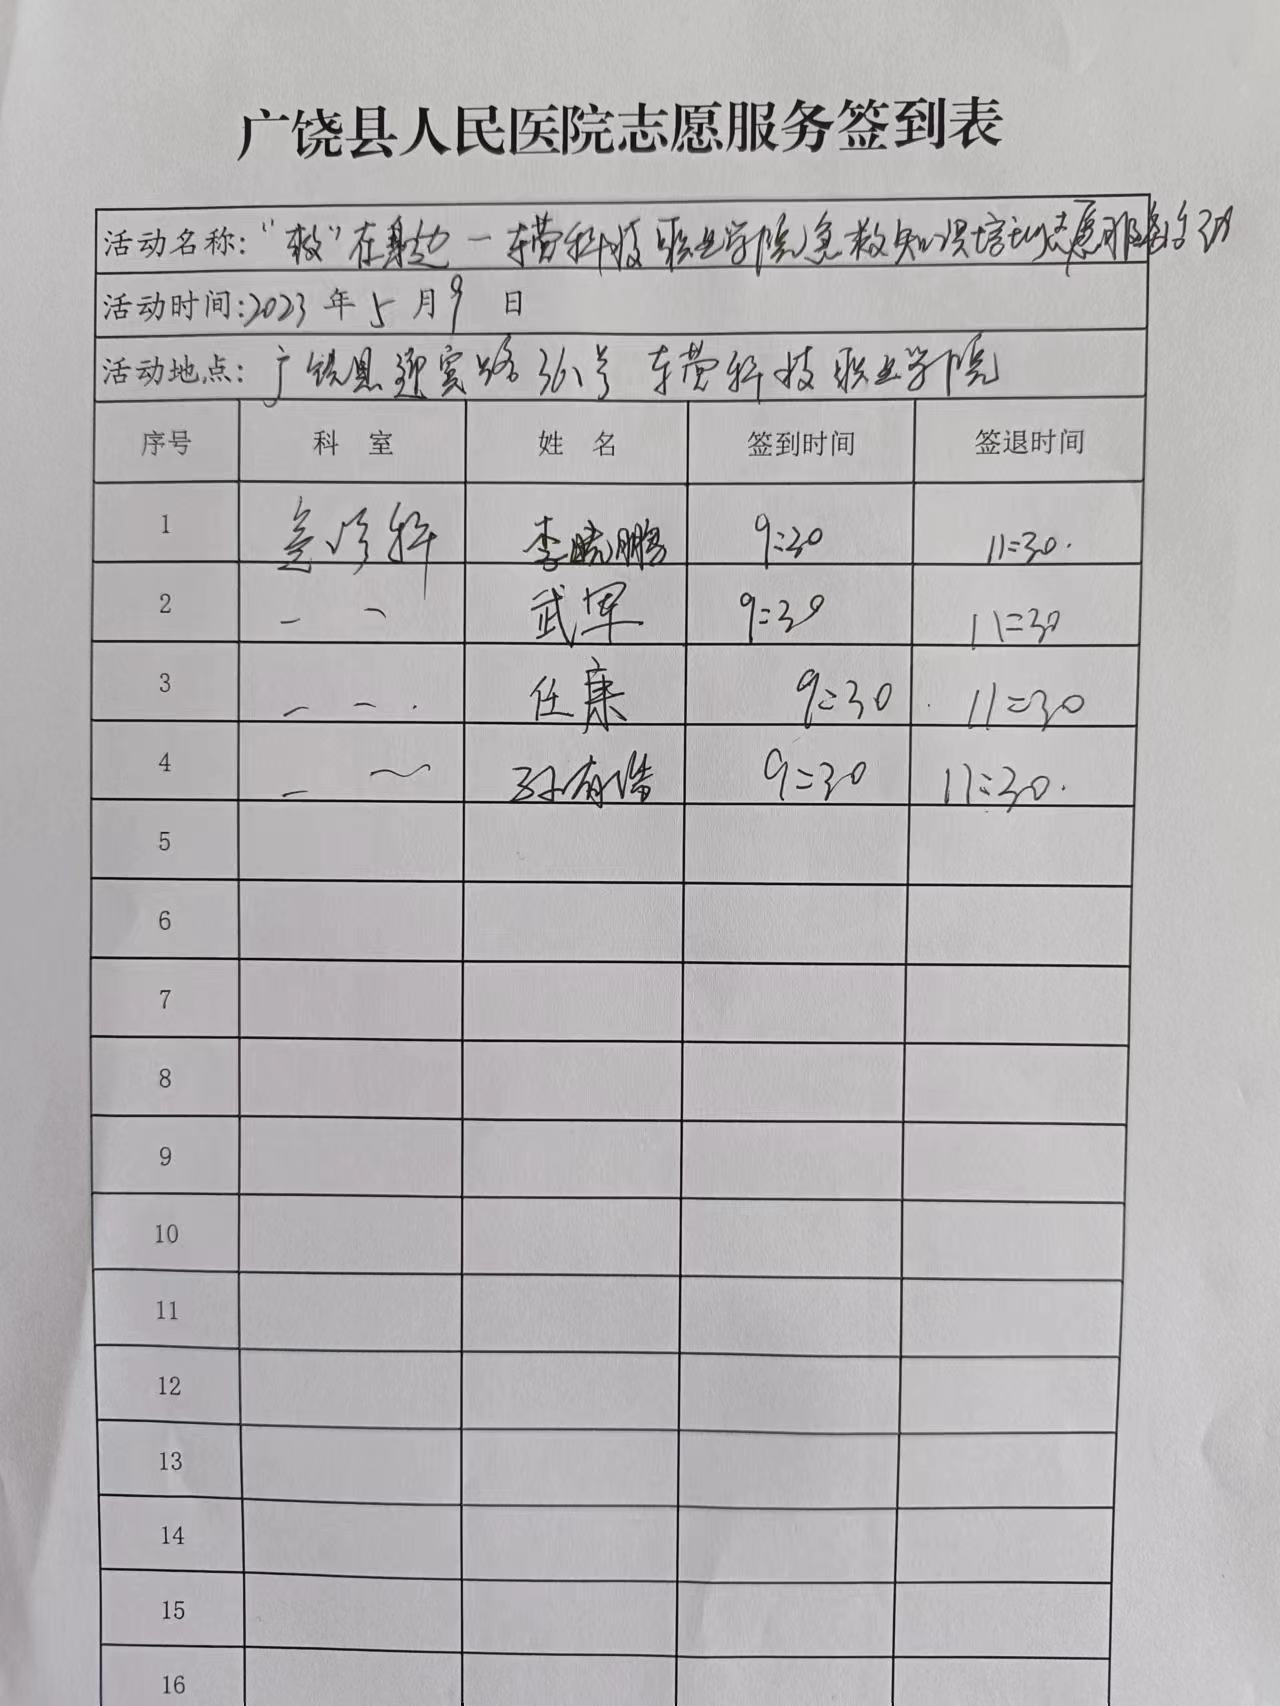 广饶县人民医院志愿服务签到表
活动名称:"救"在身边一东营科技职业学院急救知识培训志愿服务活动
活动时间:2023年5月9日
活动地点:广饶县迎宾路361号 东营科技职业学院
序号 科 室 姓 名 签到时间 签退时间
1 急诊科 李晓鹏 9:30 11:30.
2 武军 9:30 11:30
3 任康 9:30 11:30
4 孙有浩 9:30 11:30.
5
6
7
8
9
10
11
12
13
14
15
16